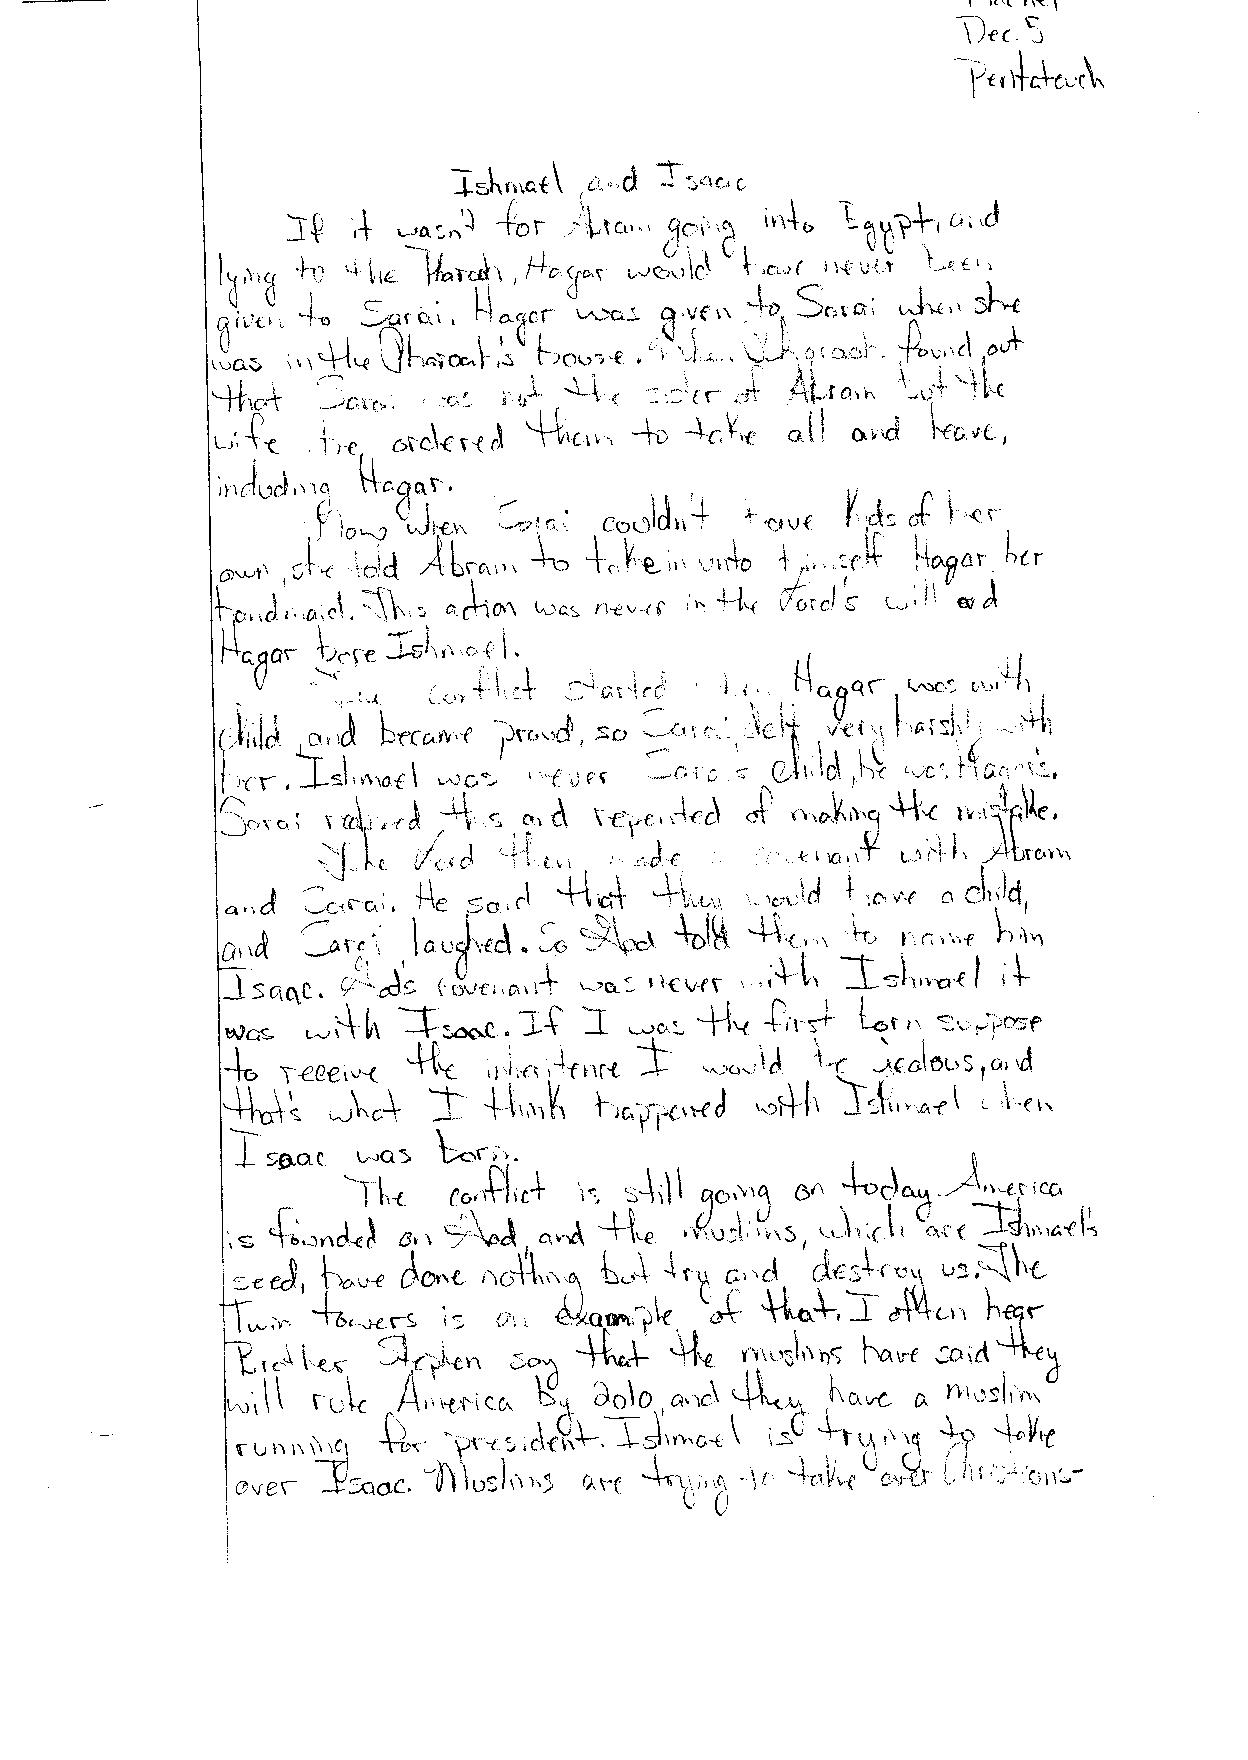 Dec. 5
Pentateuch
Ishmael and Isaac
If it wasn't for Abram going into Egypt, and
lying to the Haroah, Hagar would have never been
given to Sarai. Hagar was given to Sarai when she
was in the Pharoah's house. When Pharoah found out
that Sarai was not the sister of Abram but the
wife he ordered them to take all and leave,
including Hagar.
Now when Sarai couldn't have kids of her
own, she told Abram to take in unto himself Hagar her
handmaid. This action was never in the Lord's will and
Hagar bore Ishmael.
The conflict started when Hagar was with
child, and became proud, so Sarai delt very harshly with
her. Ishmael was never Sarai's child, he was Hagar's.
Sarai realized this and repented of making the mistake.
The Lord then made a covenant with Abram
and Sarai. He said that they would have a child,
and Sarai laughed. So God told them to name him
Isaac. God's covenant was never with Ishmael it
was with Isaac. If I was the first born suppose
to receive the inheritence I would be jealous, and
that's what I think happened with Ishmael when
Isaac was born.
The conflict is still going on today. America
is founded on God, and the muslims, which are Ishmael's
seed, have done nothing but try and destroy us. The
Twin towers is an example of that. I often hear
Brother Stephen say that the muslims have said they
will rule America by 2010, and they have a muslim
running for president. Ishmael is trying to take
over Isaac. Muslims are trying to take over Christians-